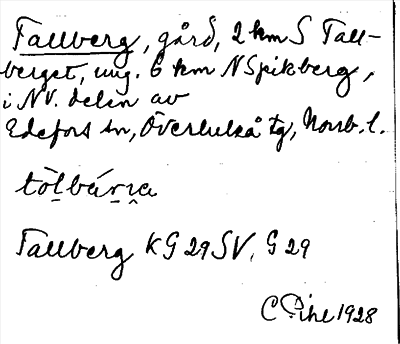 Tallberg, gård, 2 km S Tall-
berget, ung. 6 km N Spikberg,
i NV. delen av
Edefors sn, Överluleå tg, Norrb. l.
tòlbárṇa
Tallberg KG 29 SV, G 29
C Pihl 1928